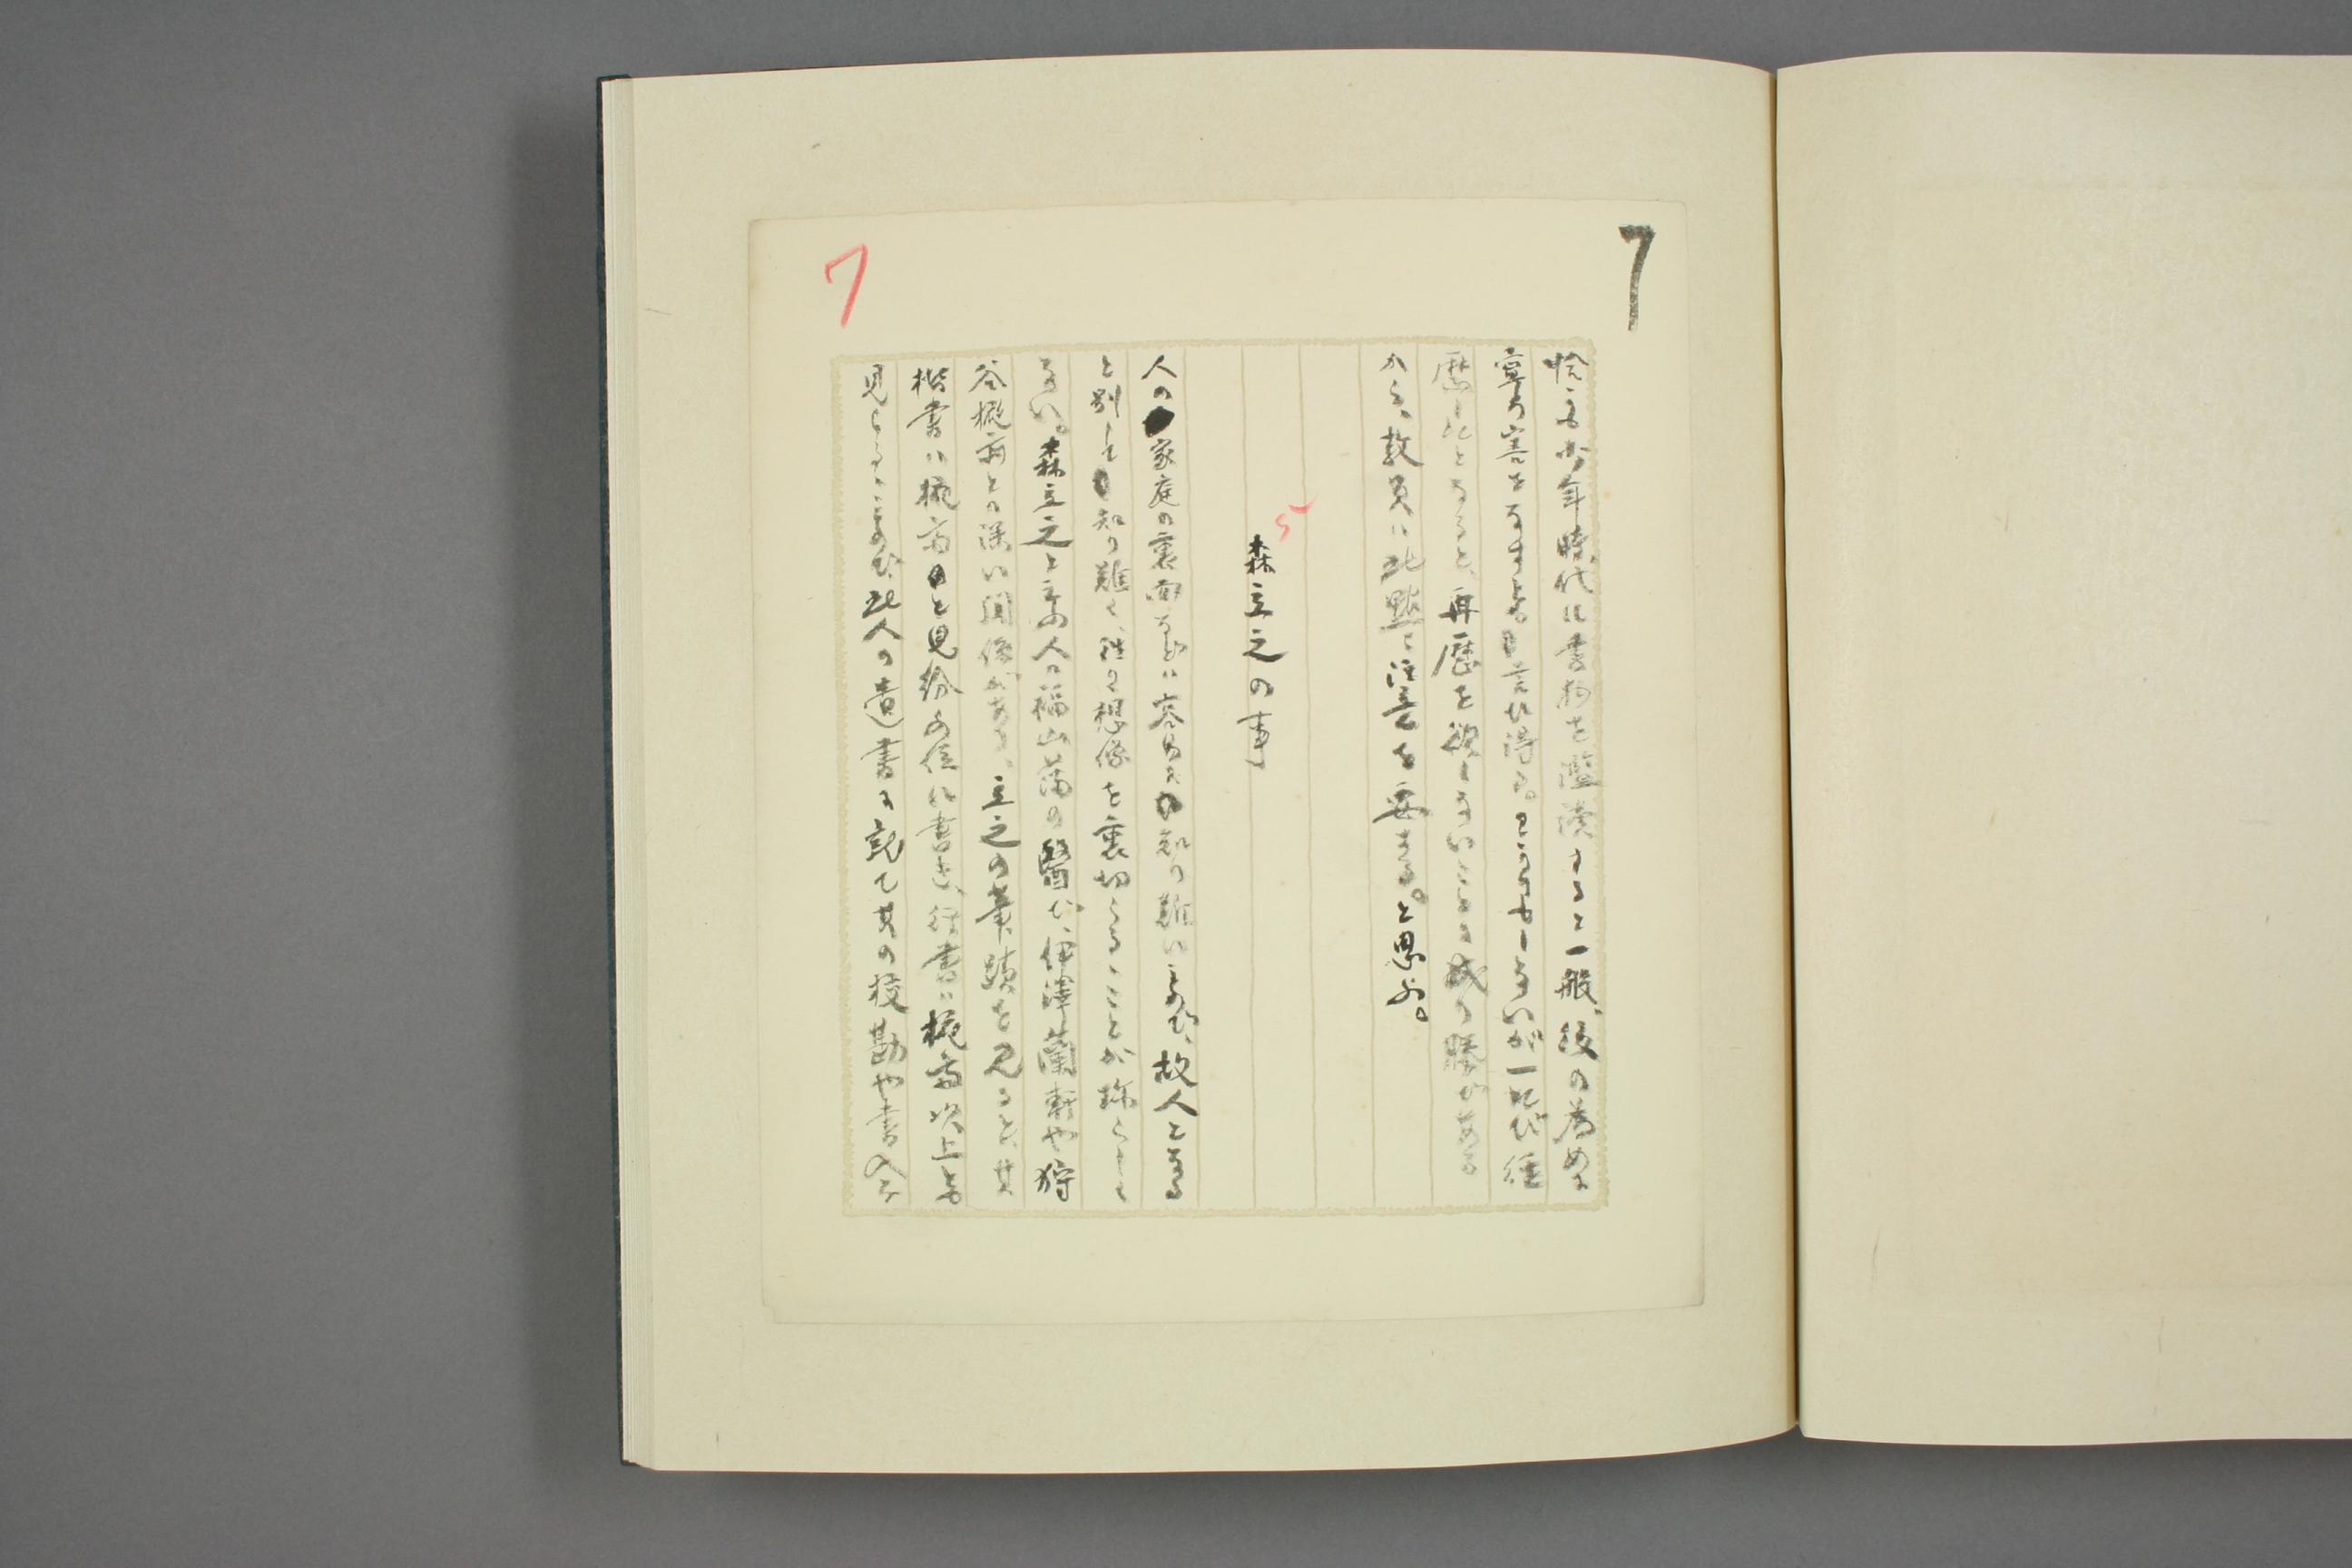 7
7
恰も少年時代に書物を濫讀すると一般、後の為めに
寧ろ害をなすとも言ひ得る。のみならないが一たび経
歴したとなると、再歴を欲しないことに成り勝である
から、教員は此點に注意を要する。と思ふ。
5
森立之の事
人の家庭の裏面などは容易に知り難いもので、故人となる
と別して知り難く、往々想像を裏切らるゝことが珍らしく
ない。森立之と云ふ人は福山藩の醫で、伊澤蘭軒や狩
谷棭斎との深い関係がある。立之の筆蹟を見ると、其
楷書は棭斎と見紛ふ位に書き、行書は棭斎以上とも
見らるゝものが、此人の遺書に就て其の校勘や書入